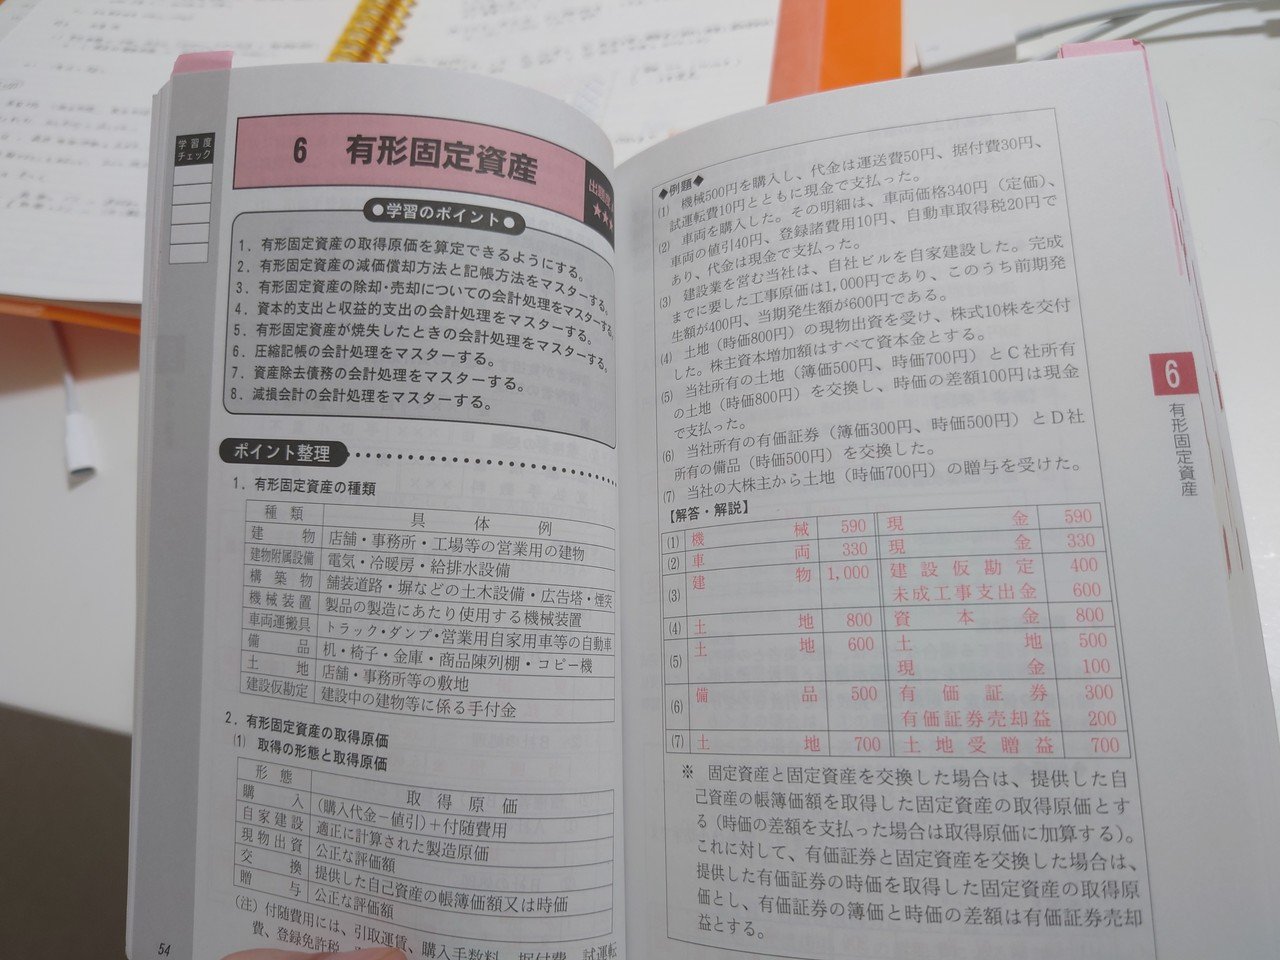 学習度
チェック
6 有形固定資産
出題度
★★★
●学習のポイント●
1．有形固定資産の取得原価を算定できるようにする。
2．有形固定資産の減価償却方法と記帳方法をマスターする。
3．有形固定資産の除却・売却についての会計処理をマスターする
4．資本的支出と収益的支出の会計処理をマスターする。
5．有形固定資産が焼失したときの会計処理をマスターする。
6．圧縮記帳の会計処理をマスターする。
7．資産除去債務の会計処理をマスターする。
8．減損会計の会計処理をマスターする。
ポイント整理
1．有形固定資産の種類
種類 具体例
建物 店舗・事務所・工場等の営業用の建物
建物附属設備 電気・冷暖房・給排水設備
構築物 舗装道路・塀などの土木設備・広告塔・煙突
機械装置 製品の製造にあたり使用する機械装置
車両運搬具 トラック・ダンプ・営業用自家用車等の自動車
備品 机・椅子・金庫・商品陳列棚・コピー機
土地 店舗・事務所等の敷地
建設仮勘定 建設中の建物等に係る手付金
2．有形固定資産の取得原価
(1) 取得の形態と取得原価
形態 取得原価
購入 (購入代金－値引)＋付随費用
自家建設 適正に計算された製造原価
現物出資 公正な評価額
交換 提供した自己資産の帳簿価額又は時価
贈与 公正な評価額
(注) 付随費用には、引取運賃、購入手数料、据付費、試運転
費、登録免許税、
54
◆例題◆
(1) 機械500円を購入し、代金は運送費50円、据付費30円、
試運転費10円とともに現金で支払った。
(2) 車両を購入した。その明細は、車両価格340円（定価）、
車両の値引40円、登録諸費用10円、自動車取得税20円で
あり、代金は現金で支払った。
(3) 建設業を営む当社は、自社ビルを自家建設した。完成
までに要した工事原価は1,000円であり、このうち前期発
生額が400円、当期発生額が600円である。
(4) 土地（時価800円）の現物出資を受け、株式10株を交付
した。株主資本増加額はすべて資本金とする。
(5) 当社所有の土地（簿価500円、時価700円）とC社所有
の土地（時価800円）を交換し、時価の差額100円は現金
で支払った。
(6) 当社所有の有価証券（簿価300円、時価500円）とD社
所有の備品（時価500円）を交換した。
(7) 当社の大株主から土地（時価700円）の贈与を受けた。
【解答・解説】
(1) 機械 590 現金 590
(2) 車両 330 現金 330
(3) 建物 1,000 建設仮勘定 400
未成工事支出金 600
(4) 土地 800 資本金 800
(5) 土地 600 土地 500
現金 100
(6) 備品 500 有価証券 300
有価証券売却益 200
(7) 土地 700 土地受贈益 700
※ 固定資産と固定資産を交換した場合は、提供した自
己資産の帳簿価額を取得した固定資産の取得原価とす
る（時価の差額を支払った場合は取得原価に加算する）。
これに対して、有価証券と固定資産を交換した場合は、
提供した有価証券の時価を取得した固定資産の取得原
価とし、有価証券の簿価と時価の差額は有価証券売却
益とする。
6
有形固定資産